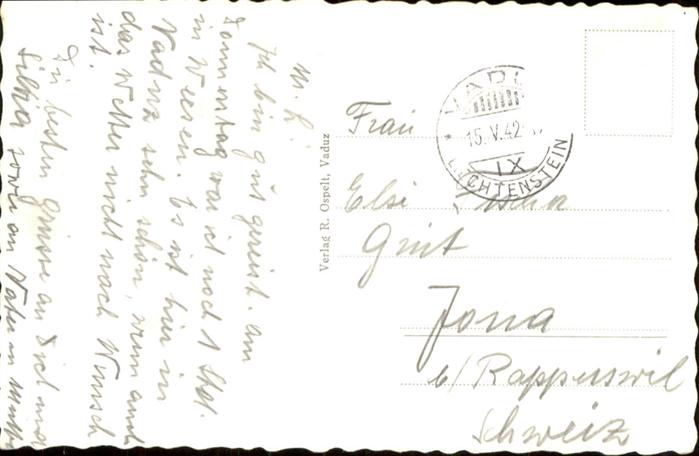 M. L.
Ich bin gut gereist. Am
Sonntag war ich noch 1 Std.
in Wiesen. Es ist hier in
Vaduz sehr schön, wenn auch
das Wetter nicht nach Wunsch
ist.
Die besten Grüsse an Dich und
sowie an Vater u. Mutter
Verlag R. Ospelt, Vaduz
VADUZ
15.V.42
IX
LIECHTENSTEIN
Frau
Elsi
Grüt
Jona
b/ Rapperswil
Schweiz